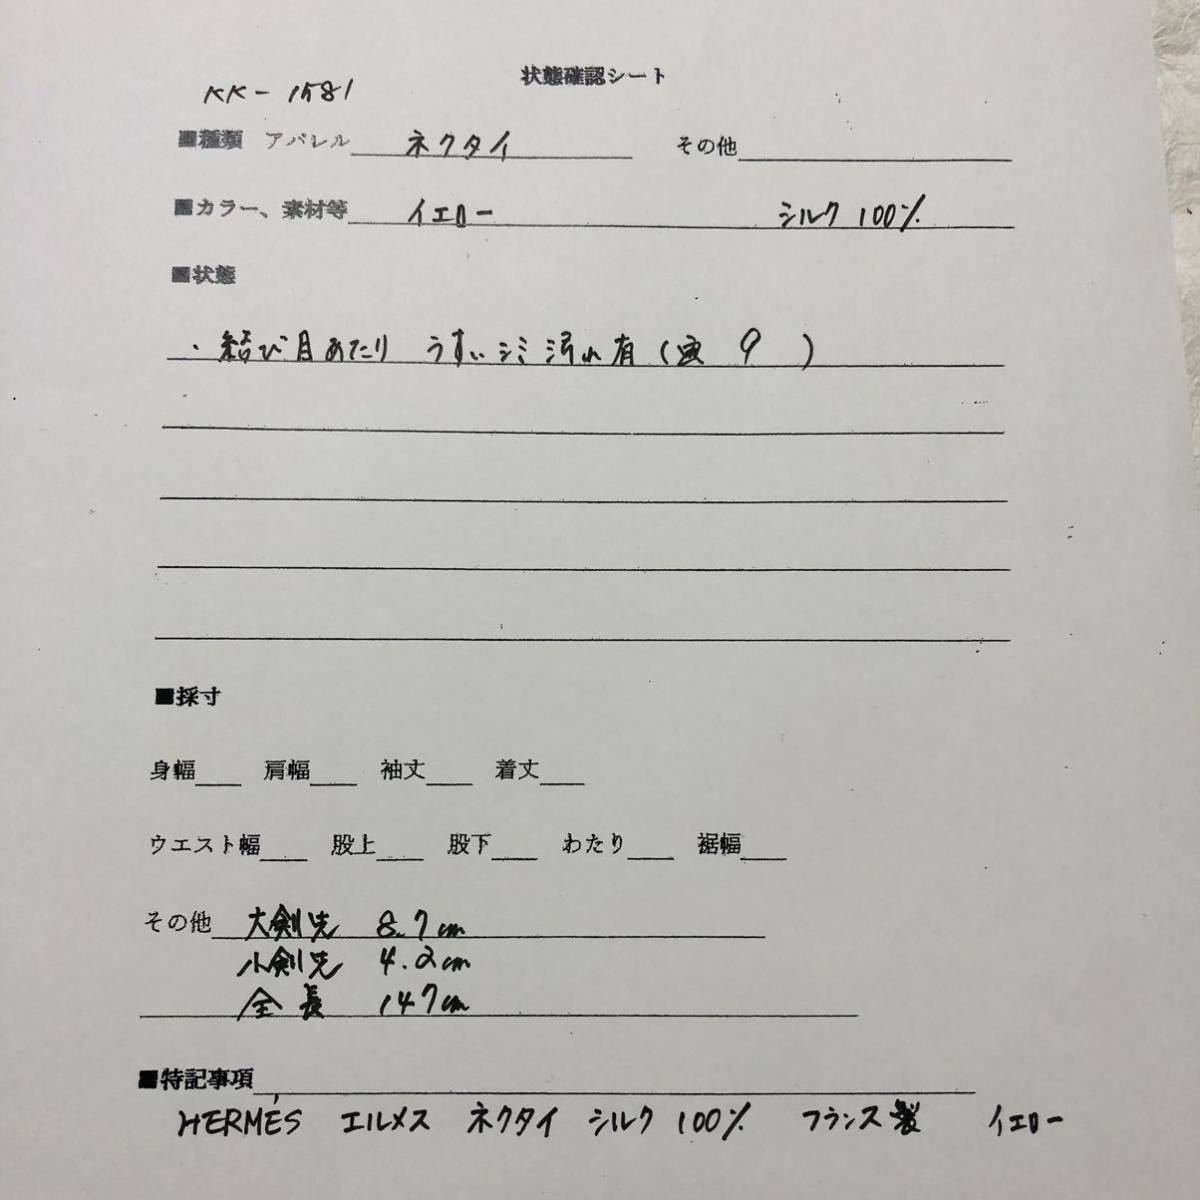 状態確認シート
KK-1581
■種類 アパレル ネクタイ その他
■カラー、素材等 イエロー シルク 100%
■状態
・結び目あたり うすいシミ 汚れ有 (画 9 )
■採寸
身幅 肩幅 袖丈 着丈
ウエスト幅 股上 股下 わたり 裾幅
その他 大剣先 8.7cm
小剣先 4.2cm
全長 147cm
■特記事項
HERMÉS エルメス ネクタイ シルク 100% フランス製 イエロー